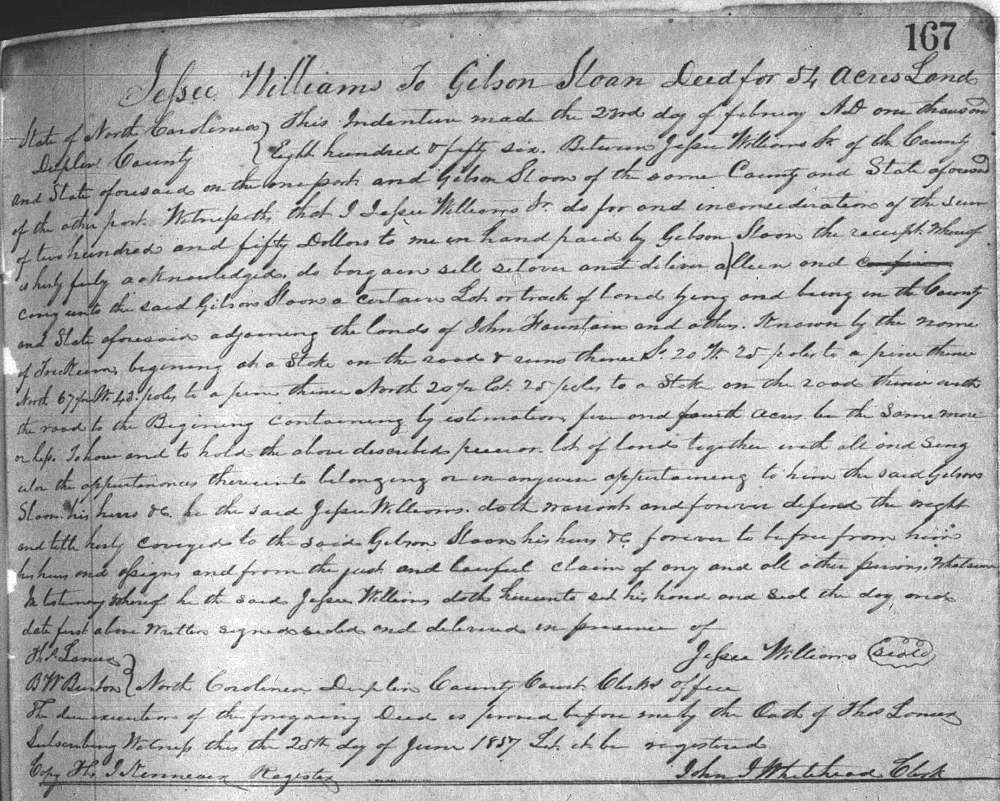 167
Jessee Williams To Gibson Sloan Deed for 54 Acres Land
State of North Carolinea } This Indenture made the 23rd day of februay AD one thousand
Duplin County { Eight hundred & fifty six. Between Jessee Williams Sr. of the County
and State aforesaid on the one part and Gibson Sloan of the same County and State aforesaid
of the other part. Witnesseth, that I Jessee Williams Sr. do for and inconsideration of the sum
of two hundred and fifty Dollars to me in hand paid by Gibson Sloan the receipt Whereof
is herby fully acknowledged, do bargain sell setover and deliver alien and
convy unto the said Gibson Sloan a certain Lot or track of land lying and being in the County
and State aforesaid adjoining the lands of John Fountain and others. Known by the name
of begining at a Stake on the road & runs thence So. 20 W 25 poles to a pine thence
North 67 W 43 poles to a pine thence North 20 Est 25 poles to a Stake on the road thence with
the road to the Begining Containing by estimation five and fourth acres be the Same more
or less. To have and to hold the above described or lot of land together with all and Sing
ular the appurtinances thereinto belonging or in anywise appurtaining to him the said Gibson
Sloan his heirs &c. he the said Jessee Williams doth warrant and forever defend the wright
and title herby conveyed to the said Gibson Sloan his heirs &c. forever to be free from him
his heirs and assigns and from the just and lawful claim of any and all other persons, Whatsoever
In testimony whereof he the said Jessee Williams doth hereunto set his hand and Seal the day and
date first above Written signed sealed and delivered in presence of
Jessee Williams (Seal)
B W Burton } North Carolinea Duplin County Court Clerks office
The due execution of the foregoing Deed is proved before me by the Oath of Thos
Subscribing Witness this the 25th day of June 1857 Let it be registered
Copy Thos J Register
John J Whitehead Clerk